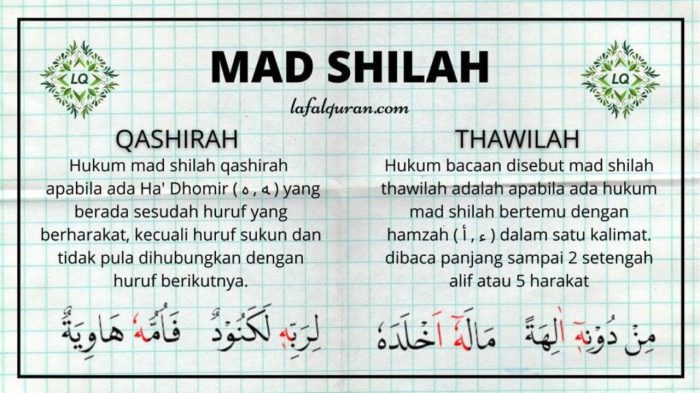 LQ
MAD SHILAH
LQ
lafalquran.com
QASHIRAH
Hukum mad shilah qashirah
apabila ada Ha' Dhomir ( ه , ﻪ ) yang
berada sesudah huruf yang
berharakat, kecuali huruf sukun dan
tidak pula dihubungkan dengan
huruf berikutnya.
لِرَبِّهٖ لَكَنُوْدٌ فَاُمُّهٗ هَاوِيَةٌ
THAWILAH
Hukum bacaan disebut mad shilah
thawilah adalah apabila ada hukum
mad shilah bertemu dengan
hamzah ( ء , أ ) dalam satu kalimat.
dibaca panjang sampai 2 setengah
alif atau 5 harakat
مِنْ دُوْنِهٖٓ اٰلِهَةً مَالَهٗٓ اَخْلَدَهٗ